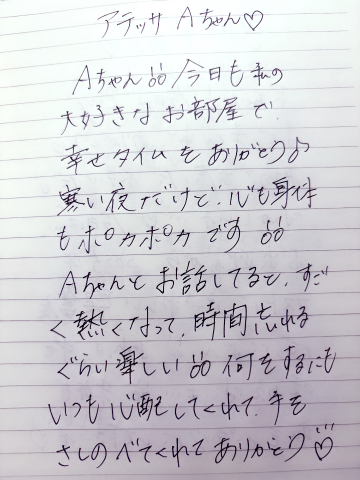 アテッサ Aちゃん♡
Aちゃん 今日も私の
大好きなお部屋で
幸せタイムをありがとう♪
寒い夜だけど、心も身体
もポカポカです
Aちゃんとお話してると、すご
く熱くなって、時間忘れる
ぐらい楽しい 何をするにも
いつも心配してくれて、手を
さしのべてくれてありがとう♡